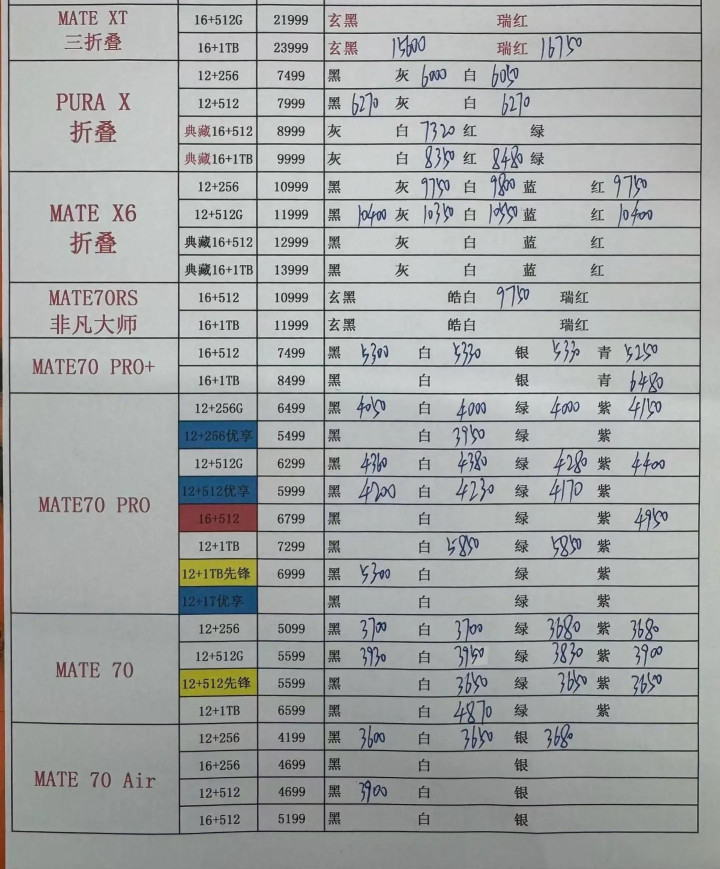 MATE XT
三折叠
16+512G 21999 玄黑 瑞红
16+1TB 23999 玄黑 15600 瑞红 16750
PURA X
折叠
12+256 7499 黑 灰 6000 白 6050
12+512 7999 黑 6270 灰 白 6270
典藏16+512 8999 灰 白 7320 红 绿
典藏16+1TB 9999 灰 白 8350 红 8480 绿
MATE X6
折叠
12+256 10999 黑 灰 9750 白 9800 蓝 红 9750
12+512G 11999 黑 10400 灰 10350 白 10550 蓝 红 10400
典藏16+512 12999 黑 灰 白 蓝 红
典藏16+1TB 13999 黑 灰 白 蓝 红
MATE70RS
非凡大师
16+512 10999 玄黑 皓白 9750 瑞红
16+1TB 11999 玄黑 皓白 瑞红
MATE70 PRO+
16+512 7499 黑 5300 白 5330 银 5330 青 5250
16+1TB 8499 黑 白 银 青 6480
MATE70 PRO
12+256G 6499 黑 4050 白 4000 绿 4000 紫 4150
12+256优享 5499 黑 白 3950 绿 紫
12+512G 6299 黑 4360 白 4380 绿 4280 紫 4400
12+512优享 5999 黑 4200 白 4230 绿 4170 紫
16+512 6799 黑 白 绿 紫 4950
12+1TB 7299 黑 白 5850 绿 5850 紫
12+1TB先锋 6999 黑 5300 白 绿 紫
12+1T优享 黑 白 绿 紫
MATE 70
12+256 5099 黑 3700 白 3700 绿 3680 紫 3680
12+512G 5599 黑 3930 白 3950 绿 3830 紫 3900
12+512先锋 5599 黑 白 3650 绿 3650 紫 3650
12+1TB 6599 黑 白 4870 绿 紫
MATE 70 Air
12+256 4199 黑 3600 白 3650 银 3680
16+256 4699 黑 白 银
12+512 4699 黑 3900 白 银
16+512 5199 黑 白 银